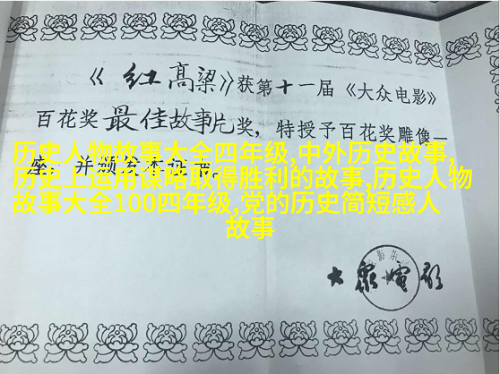 《红高粱》获第十一届《大众电影》
百花奖最佳故事片奖，特授予百花奖雕像一
座，并颁发本证书。
历史人物故事大全四年级,中外历史故事,
历史上运用谋略取得胜利的故事,历史人物
故事大全100四年级,党的历史简短感人
故事
大众电影